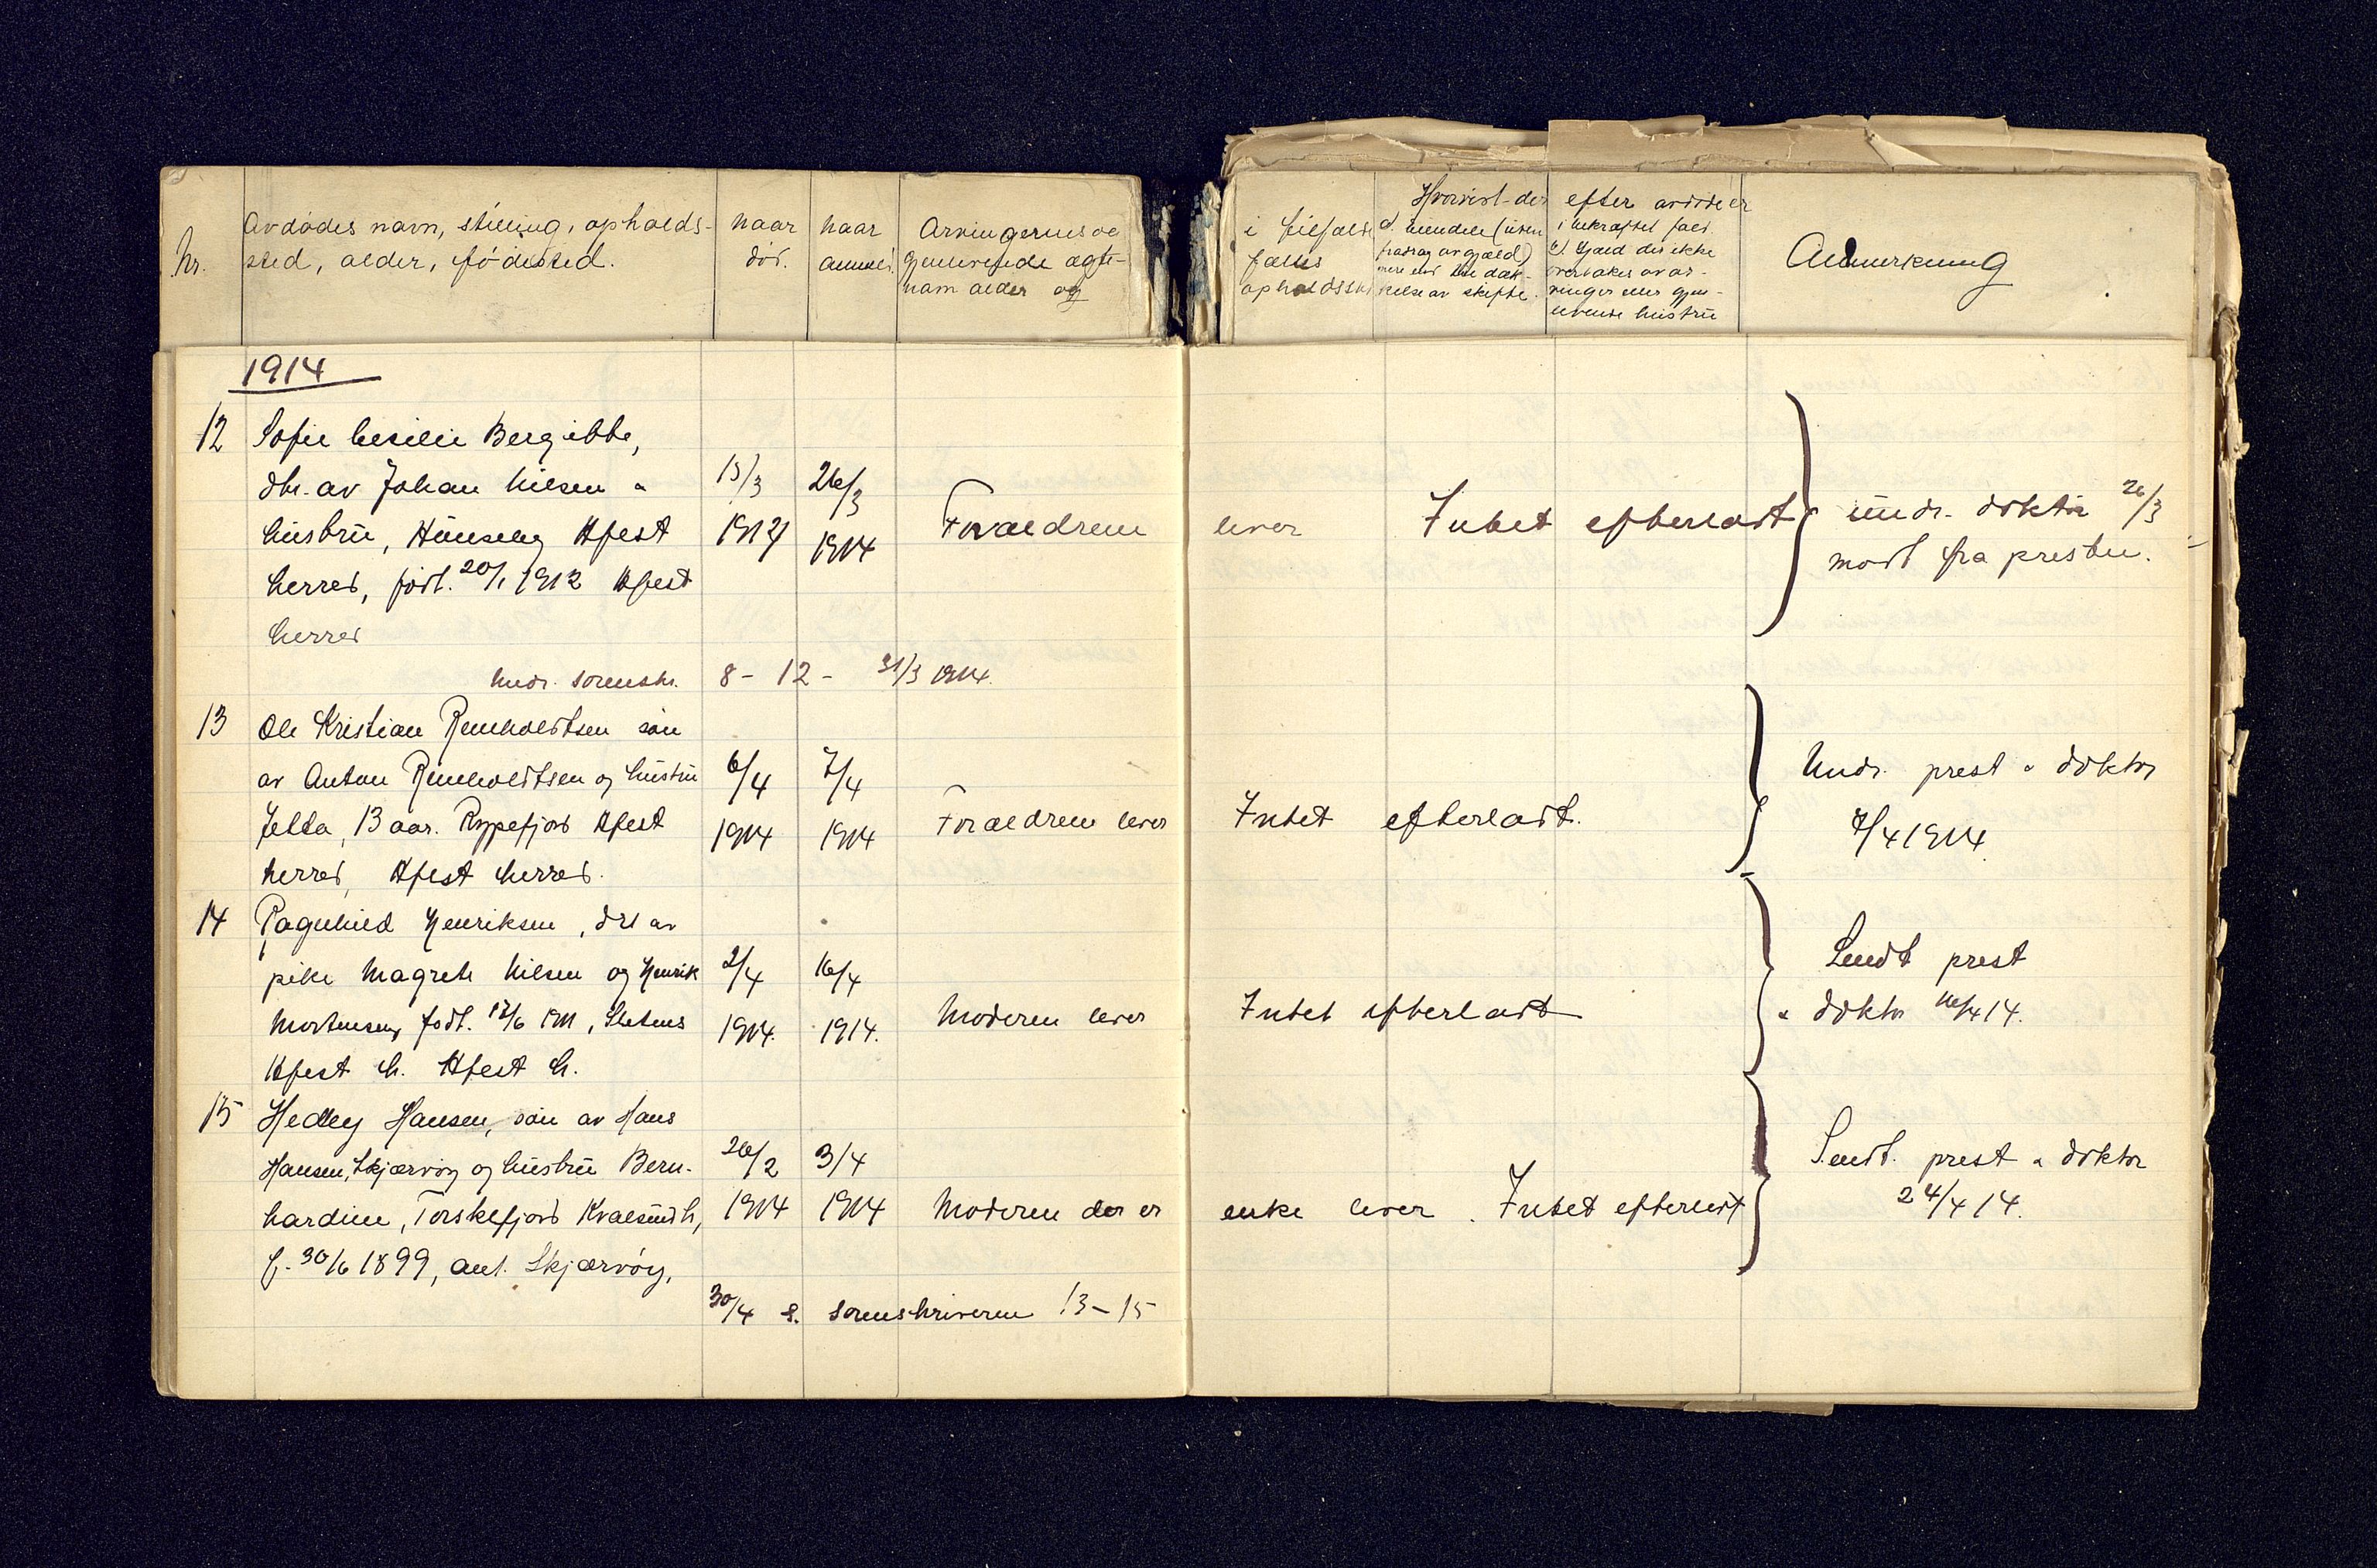 Nr.
Avdødes navn, stilling, opholds-
sted, alder, fødested.
naar
død.
naar
anmel.
Arvingernes og
gjenlevende ægte-
navn alder og
i tilfælde
fælles
opholdsst
Hvorvist der efter avdøde er
d. eiendele (uten
fradrag av gjæld)
mere end til dæk-
kelse av skifte.
i bekræftet fald
e). Gjæld der ikke
overtakes av ar-
vinger eller gjen-
levende hustru
Anmerkning
1914
12 Sofie Cesilie Berg ibbe,
dtr. av Johan Nilsen &
hustru, Hfest
herred, født. 20/1 1912 Hfest
herred
15/3
1912
26/3
1914
Forældrene lever Intet efterladt
Undr. doktor 26/3
modt fra presten.
Undr. sorenskr. 8 - 12 - 31/3 1914.
13 Ole Kristian Reinholdtsen søn
av Anton Reinholdtsen og hustru
Jetta, 13 aar. Rypefjord Hfest
herred, Hfest herred.
6/4
1914
7/4
1914
Forældrene lever Intet efterladt.
Undr. prest & doktor
7/4 1914.
14 Ragnhild Henriksen, dtr av
pike Magrete Nilsen og Henrik
Mortensen, født. 12/6 1911, Sletnes
Hfest h. Hfest h.
2/4
1914.
16/4
1914.
Moderen lever Intet efterladt
Sendt prest
& doktor 16/4 14.
15 Hedley Hansen, søn av Hans
Hansen, Skjærvøy og hustru Bern-
hardine, Torskefjord Kvalsund h,
f. 30/6 1899, ant. Skjærvøy,
26/2
1914
3/4
1914
Moderen der er enke lever. Intet efterladt
Sendt. prest & doktor
24/4 14.
30/4 s. sorenskriveren 13-15